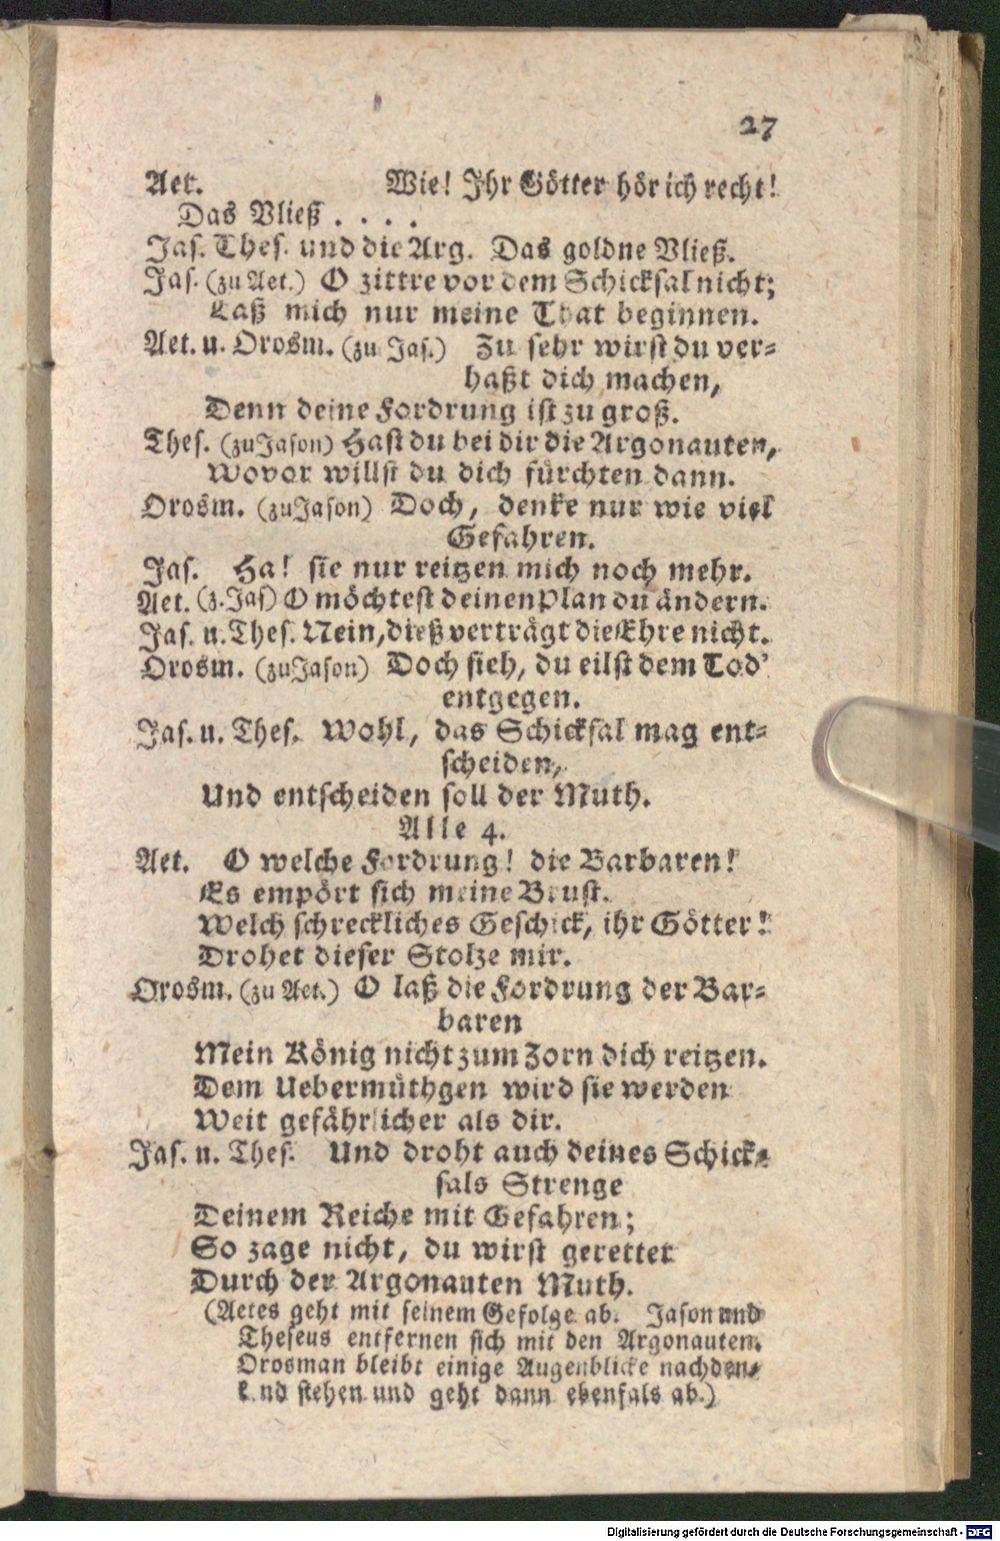 27
Aet. Wie! Ihr Götter hör ich recht!
Das Vließ . . . .
Jas. Thes. und die Arg. Das goldne Vließ.
Jas. (zu Aet.) O zittre vor dem Schicksal nicht;
Laß mich nur meine That beginnen.
Aet. u. Orosm. (zu Jas.) Zu sehr wirst du ver-
haßt dich machen,
Denn deine Fordrung ist zu groß.
Thes. (zu Jason) Hast du bei dir die Argonauten,
Wovor willst du dich fürchten dann.
Orosm. (zu Jason) Doch, denke nur wie viel
Gefahren.
Jas. Ha! sie nur reitzen mich noch mehr.
Aet. (z. Jas) O möchtest deinen Plan du ändern.
Jas. u. Thes. Nein, dieß verträgt die Ehre nicht.
Orosm. (zu Jason) Doch sieh, du eilst dem Tod'
entgegen.
Jas. u. Thes. Wohl, das Schicksal mag ent-
scheiden,
Und entscheiden soll der Muth.
Alle 4.
Aet. O welche Fordrung! die Barbaren!
Es empört sich meine Brust.
Welch schreckliches Geschick, ihr Götter!
Drohet dieser Stolze mir.
Orosm. (zu Aet.) O laß die Fordrung der Bar-
baren
Mein König nicht zum Zorn dich reitzen.
Dem Uebermüthgen wird sie werden
Weit gefährlicher als dir.
Jas. u. Thes. Und droht auch deines Schick-
sals Strenge
Deinem Reiche mit Gefahren;
So zage nicht, du wirst gerettet
Durch der Argonauten Muth.
(Aetes geht mit seinem Gefolge ab. Jason und
Theseus entfernen sich mit den Argonauten.
Orosman bleibt einige Augenblicke nachden-
kend stehen und geht dann ebenfals ab.)
Digitalisierung gefördert durch die Deutsche Forschungsgemeinschaft - DFG